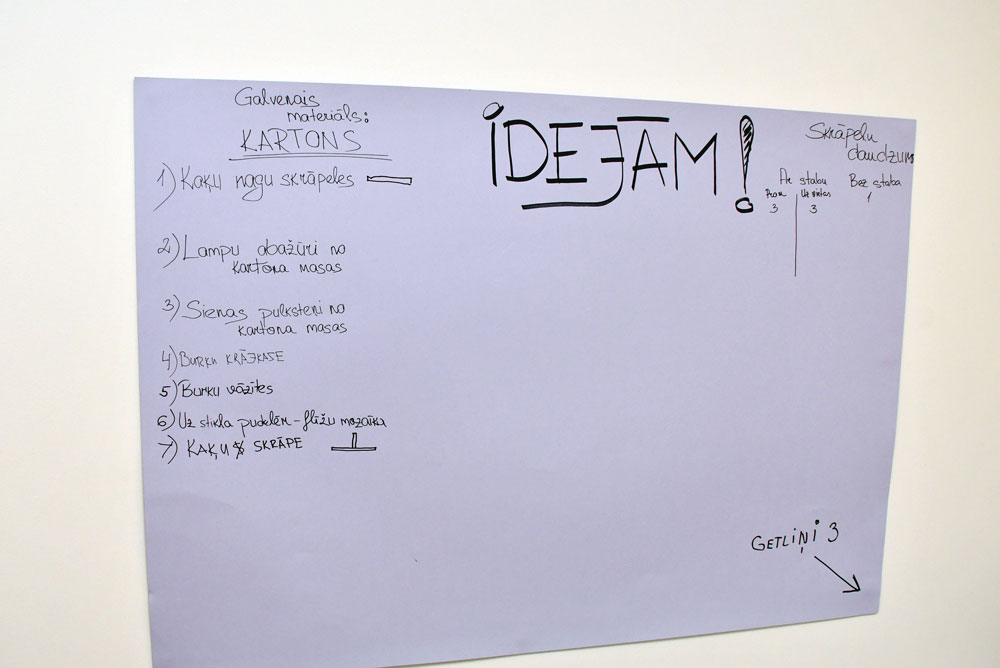 Galvenais
materiāls:
KARTONS
1) Kaķu nagu skrāpeles
2) Lampu abažūri no
kartona masas
3) Sienas pulksteni no
kartona masas
4) BURKU KRĀJKASE
5) Burku vāzītes
6) Uz stikla pudelēm - flīžu mozaīka
7) KAĶU SKRĀPE
IDEJĀM!
Skrāpeļu
daudzums
Ar stabu
Bez staba
Prom
Uz vietas
3
3
1
GETLIŅI 3